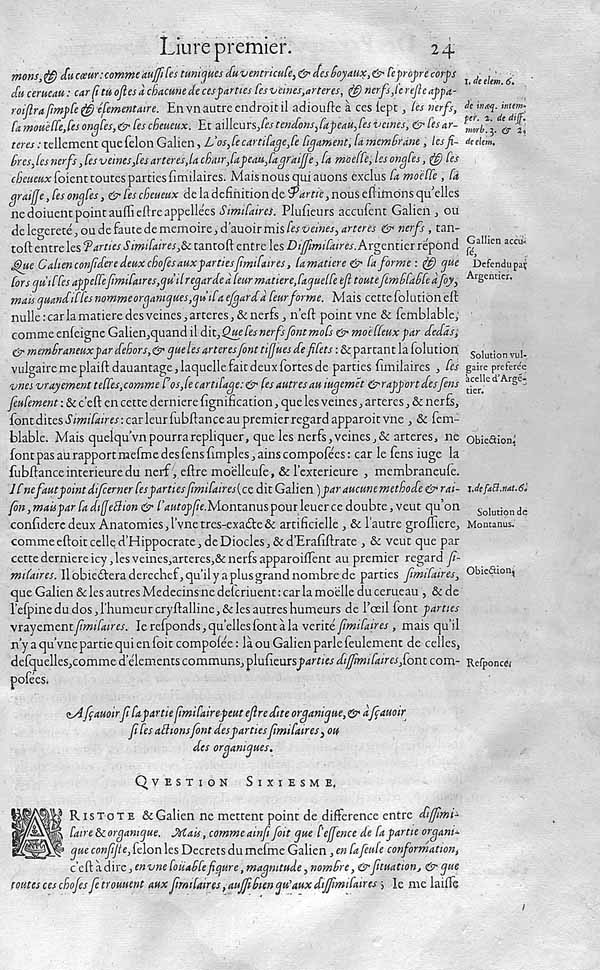 Liure premier. 24
mons, & du cœur: comme aussi les tuniques du ventricule, & des boyaux, & le propre corps
du cerueau: car si tu ostes à chacune de ces parties les veines, arteres, & nerfs, le reste appa-
roistra simple & élementaire. En vn autre endroit il adiouste à ces sept, les nerfs,
la mouëlle, les ongles, & les cheueux. Et ailleurs, les tendons, la peau, les veines, & les ar-
teres: tellement que selon Galien, L'os, le cartilage, le ligament, la membrane, les fi-
bres, les nerfs, les veines, les arteres, la chair, la peau, la graisse, la moëlle, les ongles, & les
cheueux soient toutes parties similaires. Mais nous qui auons exclus la moëlle, la
graisse, les ongles, & les cheueux de la definition de Partie, nous estimons qu'elles
ne doiuent point aussi estre appellées Similaires. Plusieurs accusent Galien, ou
de legereté, ou de faute de memoire, d'auoir mis les veines, arteres & nerfs, tan-
tost entre les Parties Similaires, & tantost entre les Dissimilaires. Argentier répond
Que Galien considere deux choses aux parties similaires, la matiere & la forme: & que
lors qu'il les appelle similaires, qu'il regarde à leur matiere, laquelle est toute semblable à soy,
mais quand il les nomme organiques, qu'il a esgard à leur forme. Mais cette solution est
nulle: car la matiere des veines, arteres, & nerfs, n'est point vne & semblable,
comme enseigne Galien, quand il dit, Que les nerfs sont mols & moëlleux par dedãs,
& membraneux par dehors, & que les arteres sont tissues de filets: & partant la solution
vulgaire me plaist dauantage, laquelle fait deux sortes de parties similaires, les
vnes vrayement telles, comme l'os, le cartilage: & les autres au iugemẽt & rapport des sens
seulement: & c'est en cette derniere signification, que les veines, arteres, & nerfs,
sont dites Similaires: car leur substance au premier regard apparoit vne, & sem-
blable. Mais quelqu'vn pourra repliquer, que les nerfs, veines, & arteres, ne
sont pas au rapport mesme des sens simples, ains composées: car le sens iuge la
substance interieure du nerf, estre moëlleuse, & l'exterieure, membraneuse.
Il ne faut point discerner les parties similaires (ce dit Galien) par aucune methode & rai-
son, mais par la dissection & l'autopsie. Montanus pour leuer ce doubte, veut qu'on
considere deux Anatomies, l'vne tres-exacte & artificielle, & l'autre grossiere,
comme estoit celle d'Hippocrate, de Diocles, & d'Erasistrate, & veut que par
cette derniere icy, les veines, arteres, & nerfs apparoissent au premier regard si-
milaires. Il obiectera derechef, qu'il y a plus grand nombre de parties similaires,
que Galien & les autres Medecins ne descriuent: car la moëlle du cerueau, & de
l'espine du dos, l'humeur crystalline, & les autres humeurs de l'œil sont parties
vrayement similaires. Ie responds, qu'elles sont à la verité similaires, mais qu'il
n'y a qu'vne partie qui en soit composée: là ou Galien parle seulement de celles,
desquelles, comme d'élements communs, plusieurs parties dissimilaires, sont com-
posées.
1. de elem. 6.
de inæq. intem-
per. 2. de diff.
morb. 3. & 2.
de elem.
Gallien accu-
sé,
Defendu par
Argentier.
Solution vul-
gaire preferée
à celle d'Argẽ-
tier.
Obiection.
1. de fact. nat. 6.
Solution de
Montanus.
Obiection.
Responce.
A sçauoir si la partie similaire peut estre dite organique, & à sçauoir
si les actions sont des parties similaires, ou
des organiques.
QVESTION SIXIESME.
ARISTOTE & Galien ne mettent point de difference entre dissimi-
laire & organique. Mais, comme ainsi soit que l'essence de la partie organi-
que consiste, selon les Decrets du mesme Galien, en la seule conformation,
c'est à dire, en vne loüable figure, magnitude, nombre, & situation, & que
toutes ces choses se trouuent aux similaires, aussi bien qu'aux dissimilaires; Ie me laisse